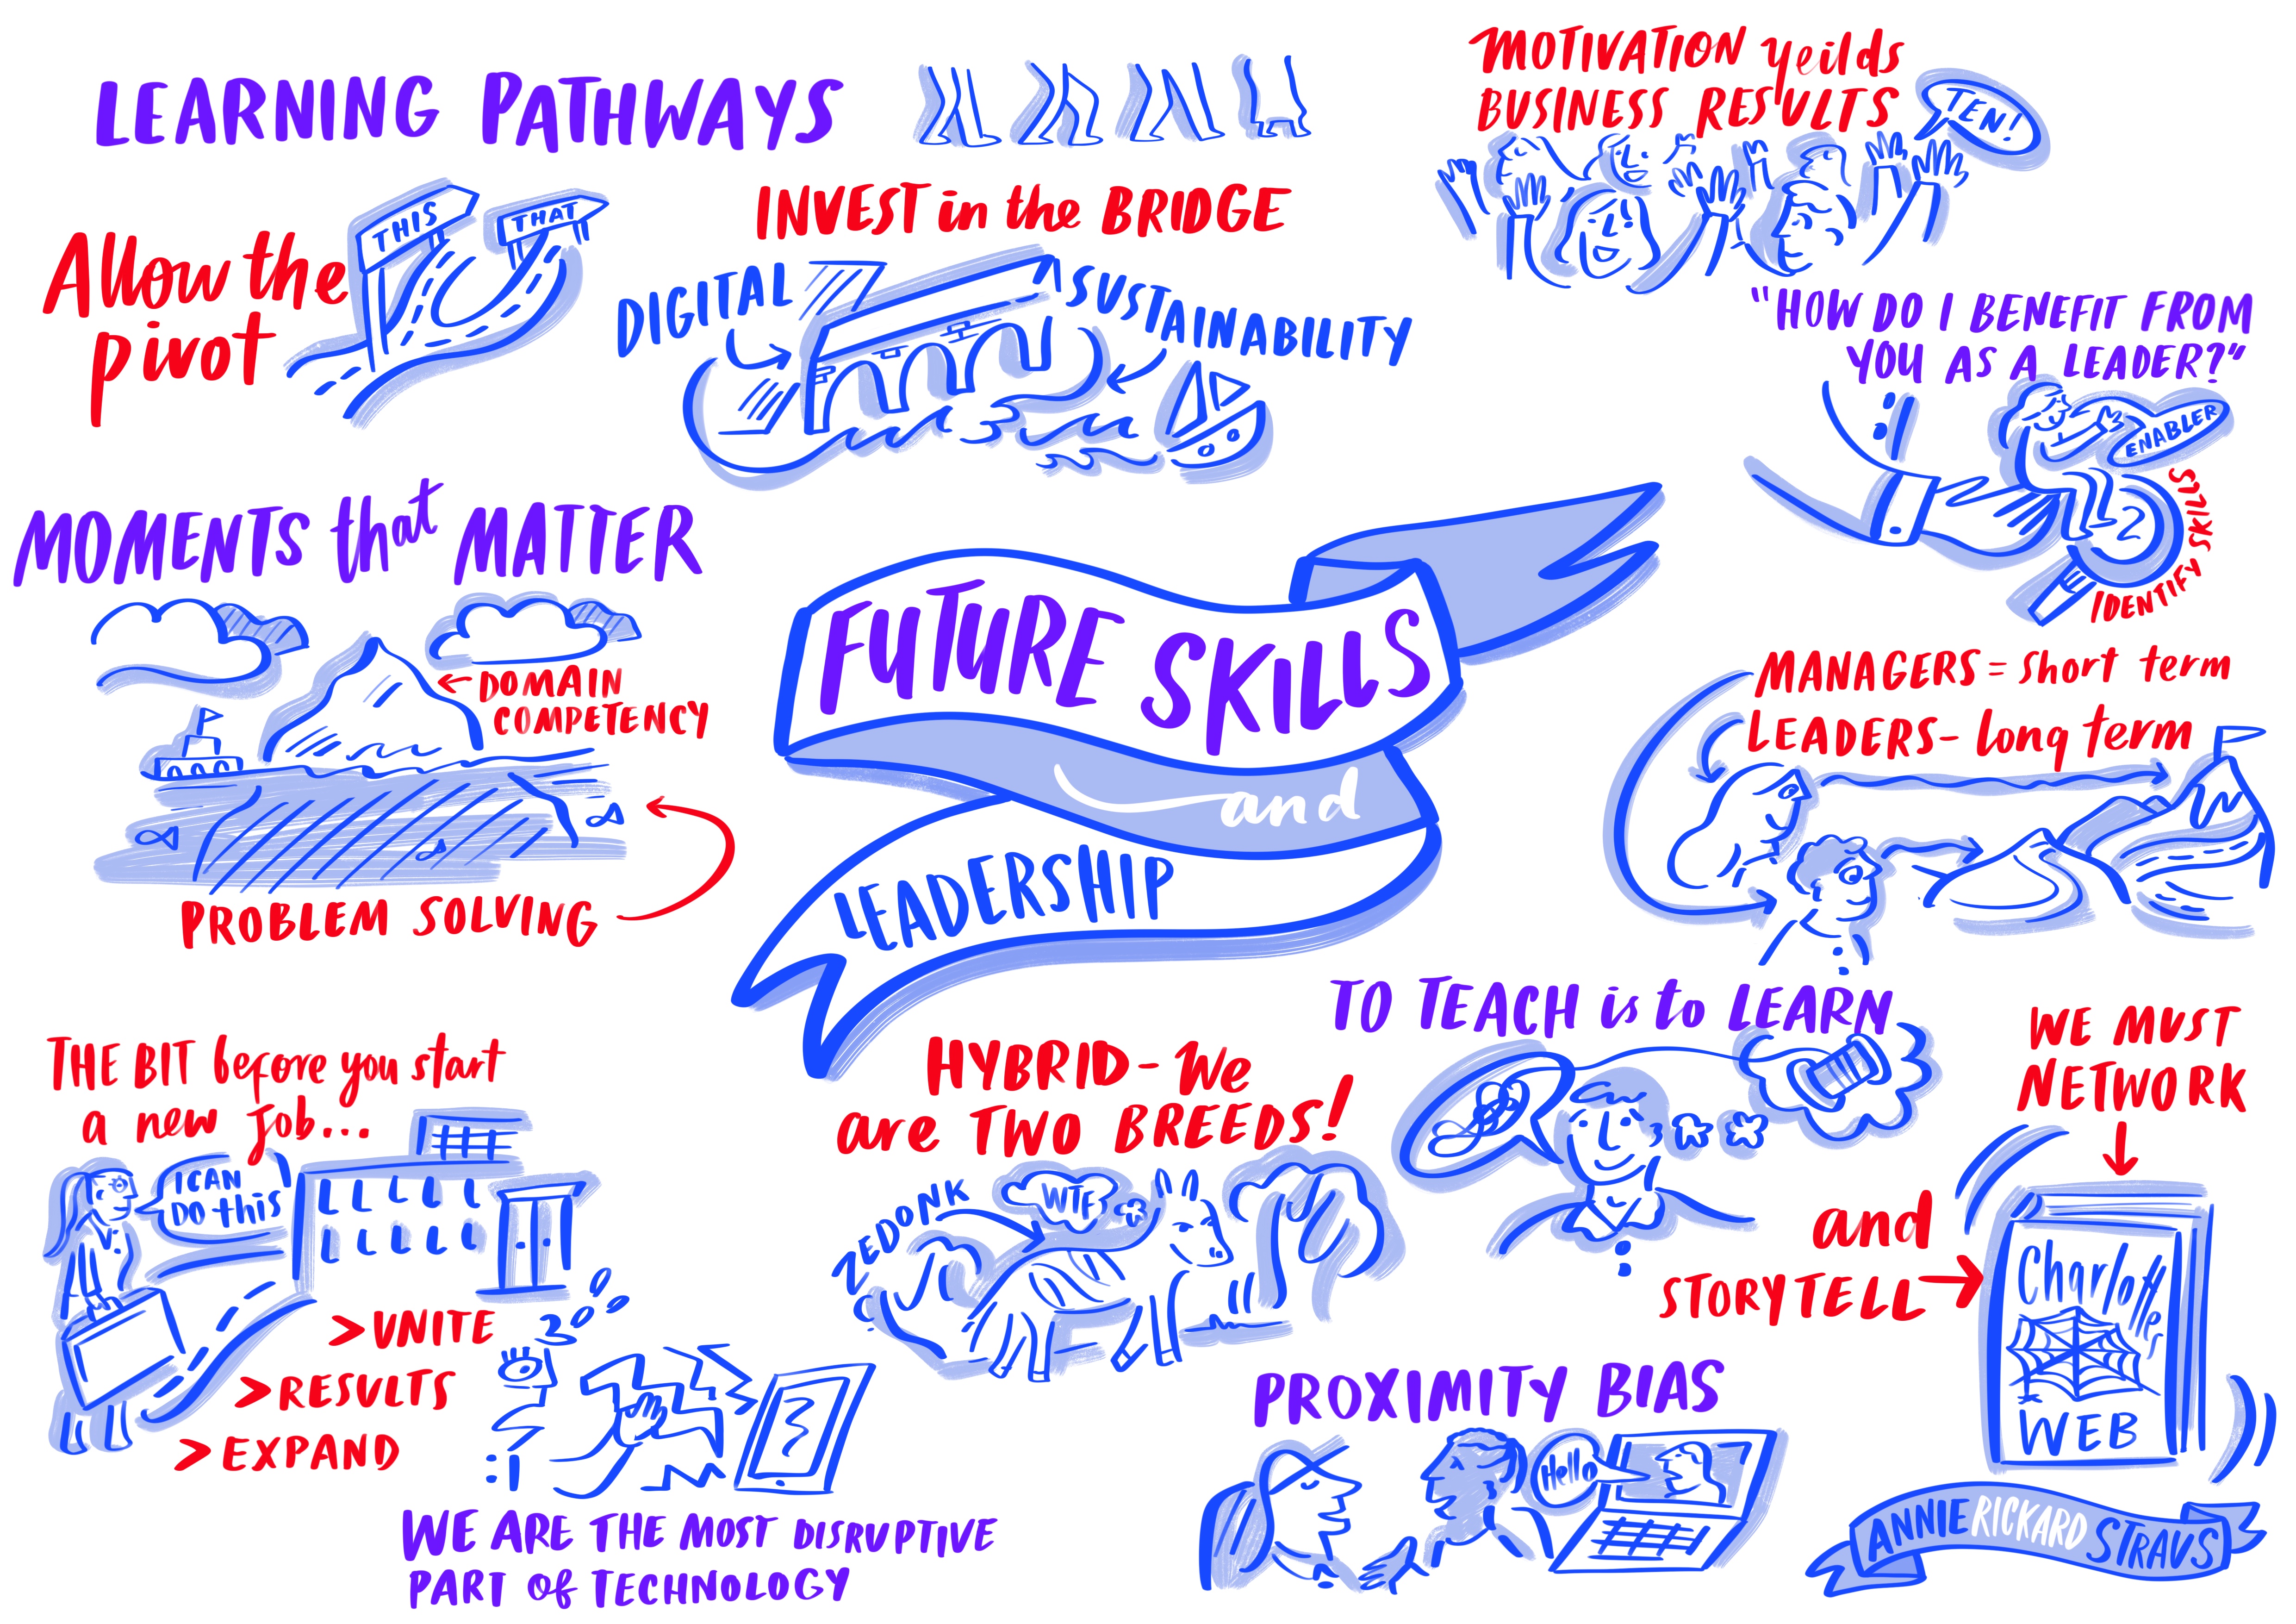 LEARNING PATHWAYS
Allow the
pivot
THIS
THAT
INVEST in the BRIDGE
DIGITAL
SUSTAINABILITY
MOTIVATION yeilds
BUSINESS RESULTS
TEN!
"HOW DO I BENEFIT FROM
YOU AS A LEADER?"
ENABLER
2
IDENTIFY SKILLS
MOMENTS that MATTER
DOMAIN
COMPETENCY
PROBLEM SOLVING
FUTURE SKILLS
and
LEADERSHIP
MANAGERS = short term
LEADERS - long term
THE BIT before you start
a new job...
I CAN
DO this
> UNITE
> RESULTS
> EXPAND
WE ARE THE MOST DISRUPTIVE
PART of TECHNOLOGY
HYBRID - We
are TWO BREEDS!
ZEDONK
WTF
TO TEACH is to LEARN
WE MUST
NETWORK
and
STORYTELL
Charlottes
WEB
PROXIMITY BIAS
Hello
ANNIE RICKARD STRAUS